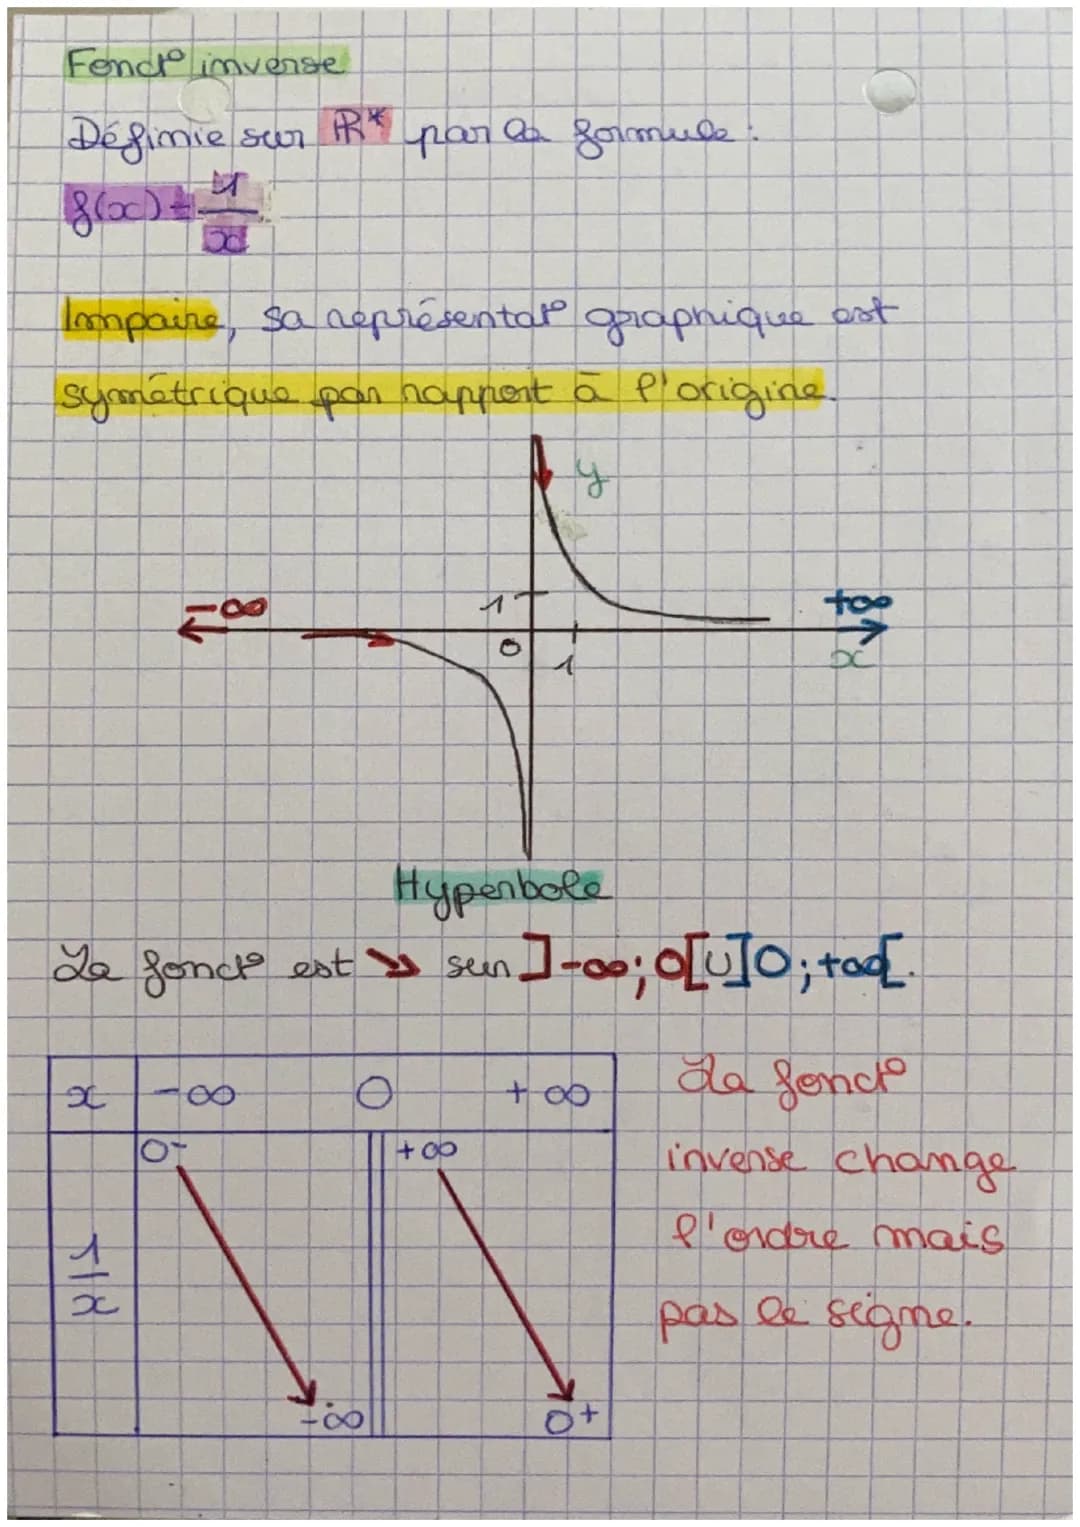 Fonct° inverse
Définie sur ℝ* par la formule :
f(x) = 1/x
Impaire, sa représentat° graphique est
symétrique par rapport à l'origine.
y
-∞ 1 +∞
0 1 x
Hyperbole
La fonct° est ↘ sur ]-∞; 0[∪]0; +∞[.
x -∞ 0 +∞
1/x 0- +∞
-∞ 0+
La fonct°
inverse change
l'ordre mais
pas le signe.